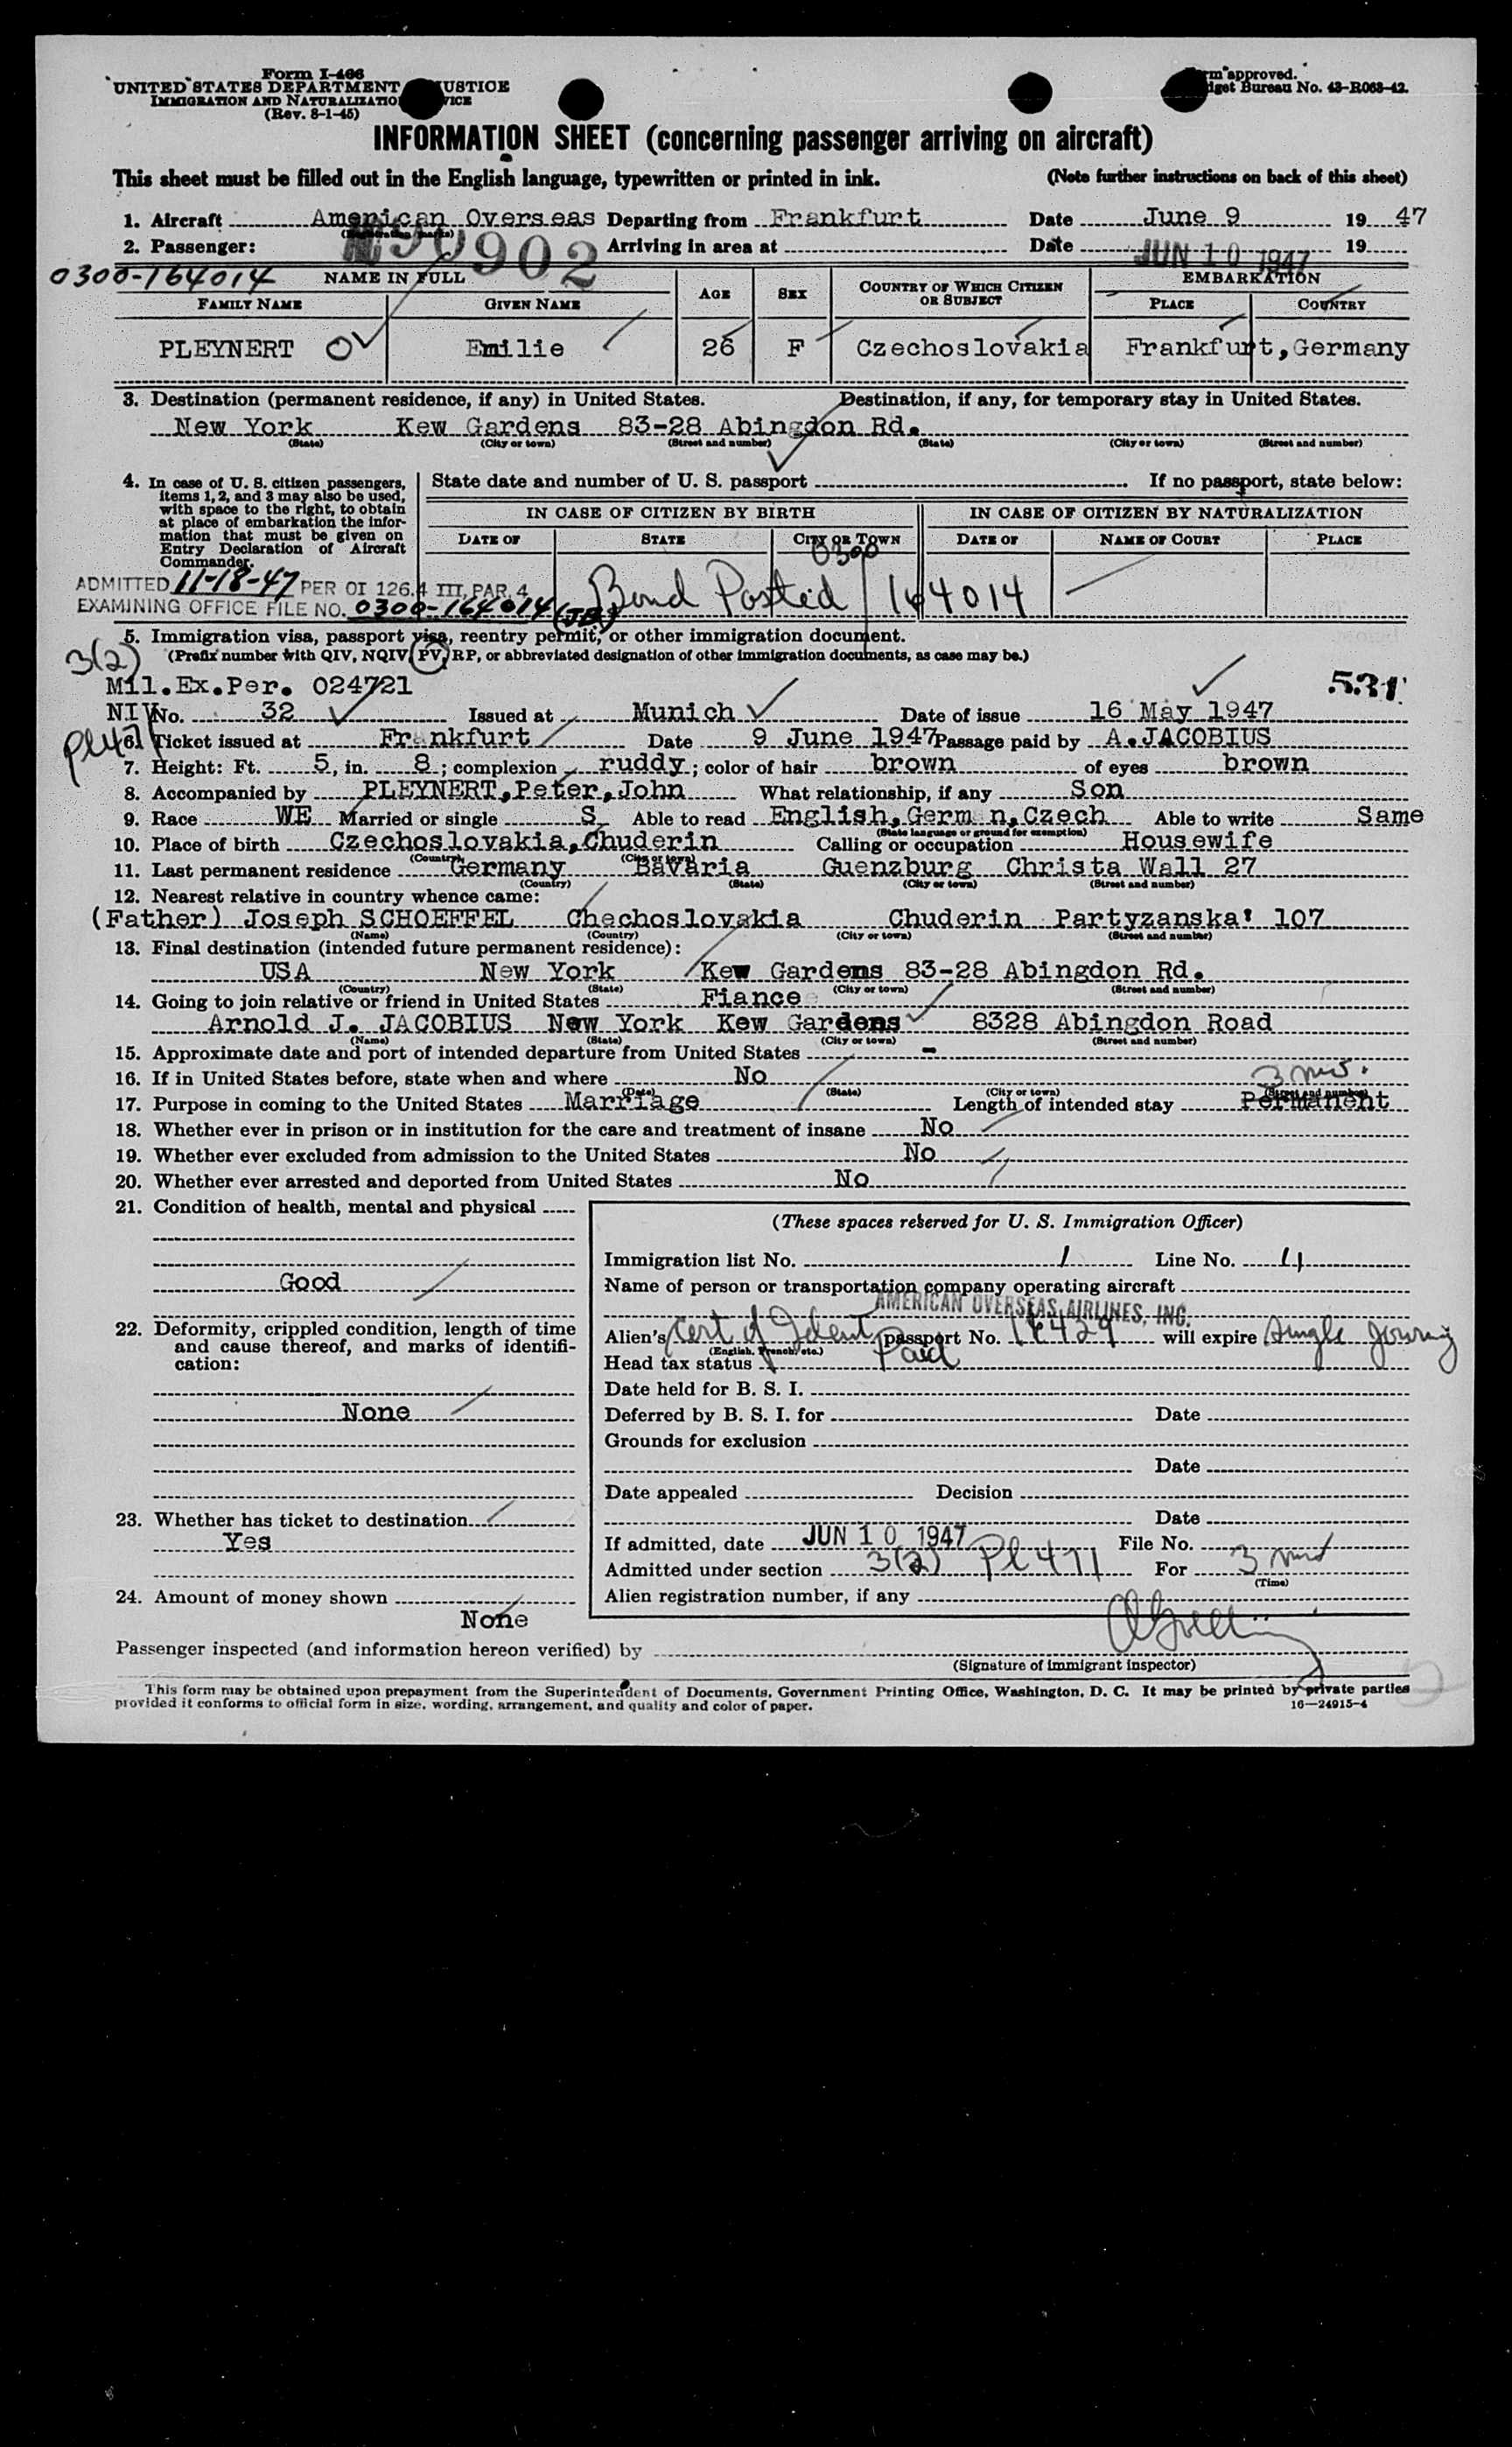 Form I-466
UNITED STATES DEPARTMENT USTICE
IMMIGRATION AND NATURALIZATIO VICE
(Rev. 8-1-45)
rm approved.
dget Bureau No. 43-R063-42.
INFORMATION SHEET (concerning passenger arriving on aircraft)
This sheet must be filled out in the English language, typewritten or printed in ink. (Note further instructions on back of this sheet)
1. Aircraft American Overseas Departing from Frankfurt Date June 9 1947
(Registration marks)
2. Passenger: 90902 Arriving in area at Date JUN 10 1947 19
0300-164014 NAME IN FULL AGE SEX COUNTRY OF WHICH CITIZEN OR SUBJECT EMBARKATION
FAMILY NAME GIVEN NAME PLACE COUNTRY
PLEYNERT Emilie 26 F Czechoslovakia Frankfurt, Germany
3. Destination (permanent residence, if any) in United States. Destination, if any, for temporary stay in United States.
New York Kew Gardens 83-28 Abingdon Rd.
(State) (City or town) (Street and number) (State) (City or town) (Street and number)
4. In case of U. S. citizen passengers, items 1, 2, and 3 may also be used, with space to the right, to obtain at place of embarkation the information that must be given on Entry Declaration of Aircraft Commander.
State date and number of U. S. passport If no passport, state below:
IN CASE OF CITIZEN BY BIRTH IN CASE OF CITIZEN BY NATURALIZATION
DATE OF STATE CITY OR TOWN DATE OF NAME OF COURT PLACE
0300
ADMITTED 11-18-47 PER OI 126.4 III, PAR. 4
EXAMINING OFFICE FILE NO. 0300-164014 (JB)
Bond Posted 164014
5. Immigration visa, passport visa, reentry permit, or other immigration document.
3(2) (Prefix number with QIV, NQIV, PV, RP, or abbreviated designation of other immigration documents, as case may be.)
Mil.Ex.Per. 024721 531
NIV No. 32 Issued at Munich Date of issue 16 May 1947
Pl471
6. Ticket issued at Frankfurt Date 9 June 1947 Passage paid by A.JACOBIUS
7. Height: Ft. 5, in. 8; complexion ruddy; color of hair brown of eyes brown
8. Accompanied by PLEYNERT, Peter, John What relationship, if any Son
9. Race WE Married or single S Able to read English, Germ n, Czech Able to write Same
(State language or ground for exemption)
10. Place of birth Czechoslovakia, Chuderin Calling or occupation Housewife
(Country) (City or town)
11. Last permanent residence Germany Bavaria Guenzburg Christa Wall 27
(Country) (State) (City or town) (Street and number)
12. Nearest relative in country whence came:
(Father) Joseph SCHOEFFEL Chechoslovakia Chuderin Partyzanska' 107
(Name) (Country) (City or town) (Street and number)
13. Final destination (intended future permanent residence):
USA New York Kew Gardens 83-28 Abingdon Rd.
(Country) (State) (City or town) (Street and number)
14. Going to join relative or friend in United States Fiance
Arnold J. JACOBIUS New York Kew Gardens 8328 Abingdon Road
(Name) (State) (City or town) (Street and number)
15. Approximate date and port of intended departure from United States -
16. If in United States before, state when and where No
(Date) (State) (City or town) (Street and number)
3 mos.
17. Purpose in coming to the United States Marriage Length of intended stay Permanent
18. Whether ever in prison or in institution for the care and treatment of insane No
19. Whether ever excluded from admission to the United States No
20. Whether ever arrested and deported from United States No
21. Condition of health, mental and physical
Good
22. Deformity, crippled condition, length of time and cause thereof, and marks of identification:
None
23. Whether has ticket to destination
Yes
24. Amount of money shown
None
(These spaces reserved for U. S. Immigration Officer)
Immigration list No. 1 Line No. 4
Name of person or transportation company operating aircraft
AMERICAN OVERSEAS AIRLINES, INC.
Alien's Cert of Ident passport No. 16429 will expire Single
(English, French, etc.)
Head tax status Paid
Date held for B. S. I.
Deferred by B. S. I. for Date
Grounds for exclusion
Date
Date appealed Decision
Date
If admitted, date JUN 10 1947 File No.
Admitted under section 3(2) Pl 471 For 3 mos
(Time)
Alien registration number, if any
Passenger inspected (and information hereon verified) by
(Signature of immigrant inspector)
This form may be obtained upon prepayment from the Superintendent of Documents, Government Printing Office, Washington, D. C. It may be printed by private parties
provided it conforms to official form in size, wording, arrangement, and quality and color of paper. 16—24915-4